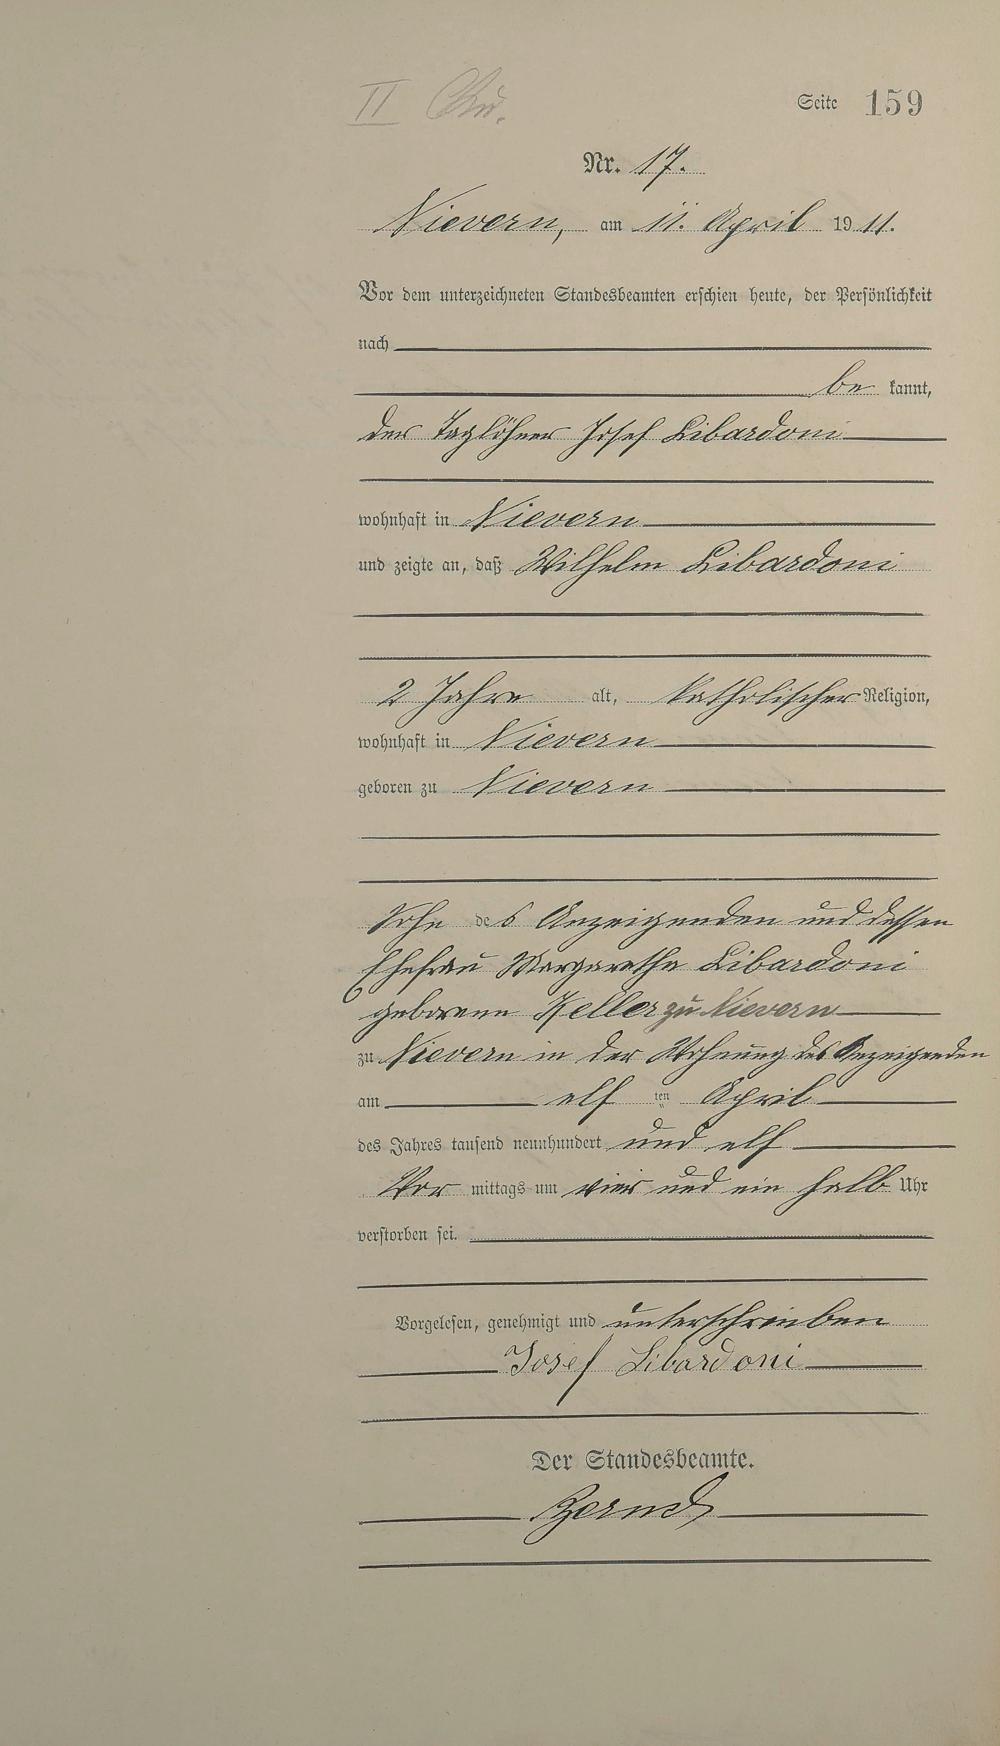 II
Seite 159
Nr. 17.
Nievern, am 11. April 1911.
Vor dem unterzeichneten Standesbeamten erschien heute, der Persönlichkeit
nach
be kannt,
der Taglöhner Josef Libardoni
wohnhaft in Nievern
und zeigte an, daß Wilhelm Libardoni
2 Jahre alt, katholischer Religion,
wohnhaft in Nievern
geboren zu Nievern
Sohn des Anzeigenden und dessen
Ehefrau Margaretha Libardoni
geborenen Keller zu Nievern
zu Nievern in der Wohnung des Anzeigenden
am elf ten April
des Jahres tausend neunhundert und elf
Vor mittags um vier und ein halb Uhr
verstorben sei.
Vorgelesen, genehmigt und unterschrieben
Josef Libardoni
Der Standesbeamte.